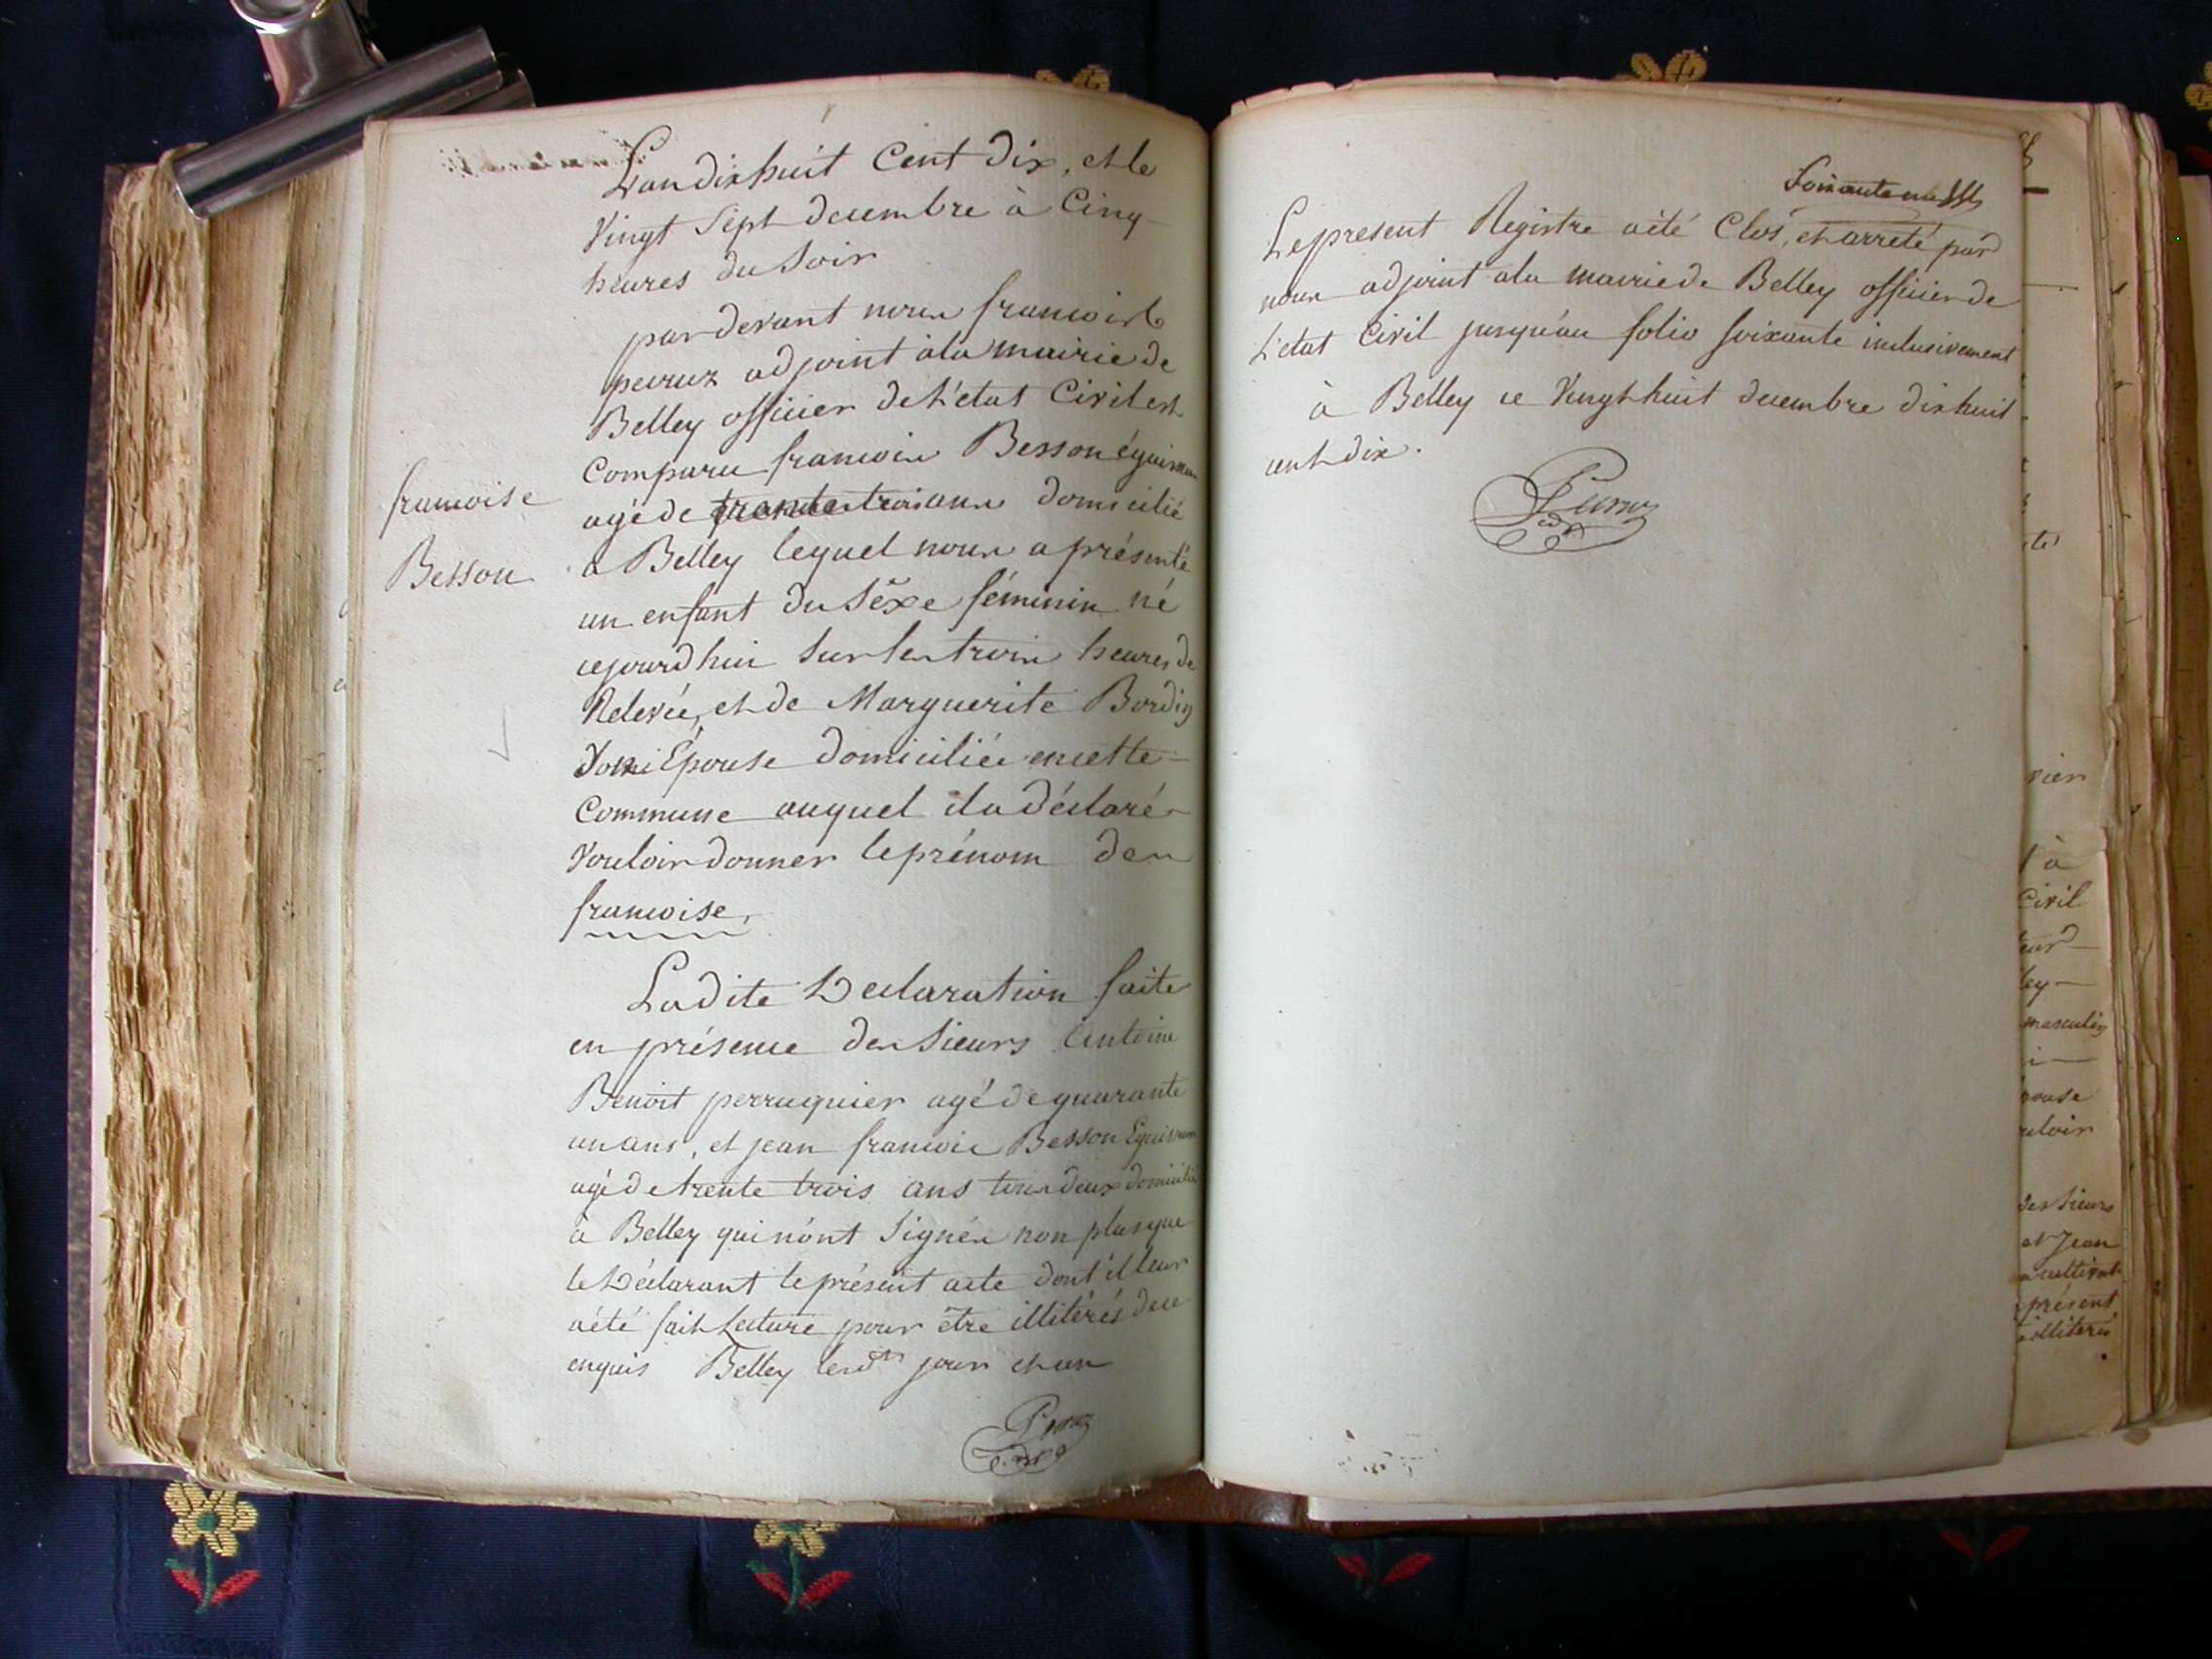 L'an dix huit Cent Dix, et le
Vingt Sept decembre à Cinq
heures du Soir
par devant nous francois
peruz adjoint à la mairie de
Belley officier de L'état Civil est
Comparu francois Besson
agé de trente trois ans domicilié
à Belley lequel nous a présenté
un enfant du Séxe féminin né
cejourdhui Sur les trois heures de
Relevée, et de Marguerite Bordin
Son Épouse domiciliée en cette
Commune auquel il a déclaré
Vouloir donner le prénom de
francoise.
francoise
Besson
Ladite Déclaration faite
en présence des Sieurs Antoine
Benoit perruquier agé de quarante
un ans, et jean francois Besson
agé de trente trois ans tous deux domiciliés
à Belley qui n'ont Signés non plus que
le Déclarant le présent acte dont il leur
a été fait Lecture pour être illitérés de ce
enquis Belley lesdts jour et an
Soixante
Le present Registre a été Clos, et arreté par
nous adjoint à la mairie de Belley officier de
L'état Civil jusqu'au folio Soixante inclusivement
à Belley ce Vingt huit decembre dix huit
cent dix.
vier
à
Civil
ley
masculin
pouse
uloir
des Sieurs
et Jean
cultivat
présent
illiterés